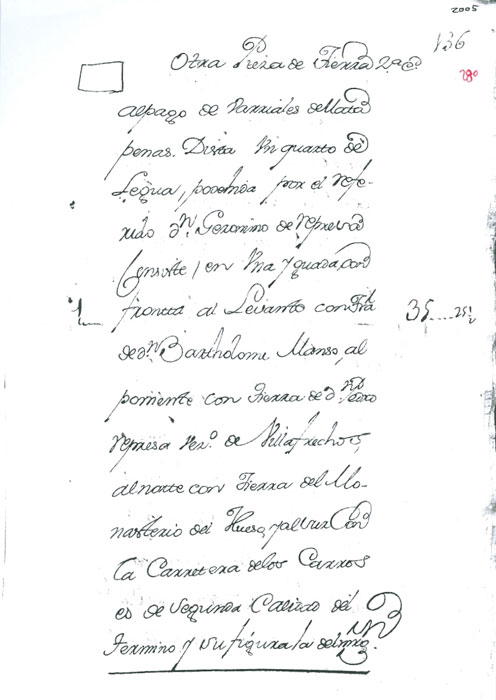 2005
136
280
Otra Pieza de Tierra 2ª Cd
al pago de Varriales de Mata
penas. Dista Un quarto de
Legua, poseida por el refe-
rido Dn. Geronimo de Represa
Consiste / en Una Yguada, con
1 frontta al Levante con Tra 35....25½
de Dn Bartholome Manso, al
poniente con Tierra de Dn Pedro
Represa Vezo. de Villafrechos,
al norte con Tierra del Mo-
nasterio del Hueso, y al Sur Con
la Carretera de los Carros
es de segunda Calidad del
Termino Y su figura la del mrg.